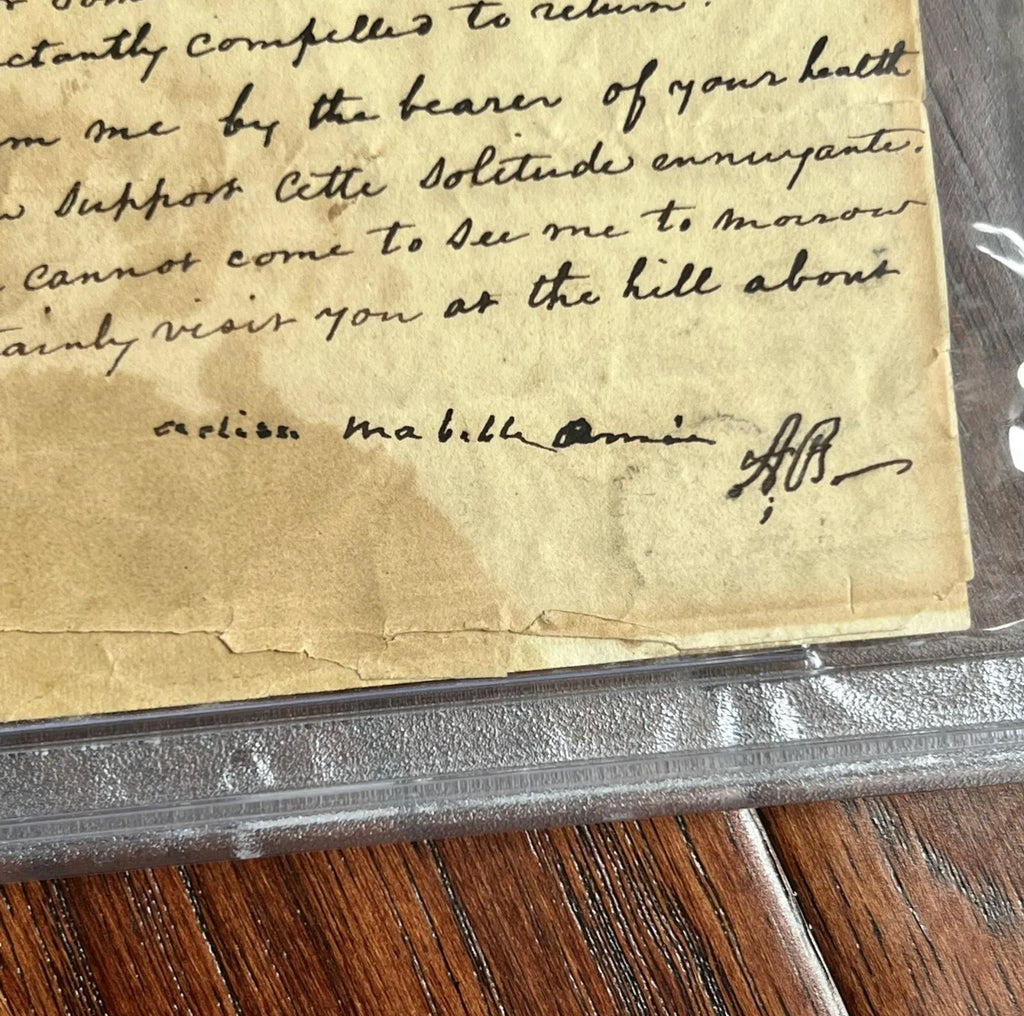 ctantly compelled to return.
m me by the bearer of your health
support cette solitude ennuyante.
cannot come to see me to morrow
tainly visit you at the hill about
ma belle amie
AB.